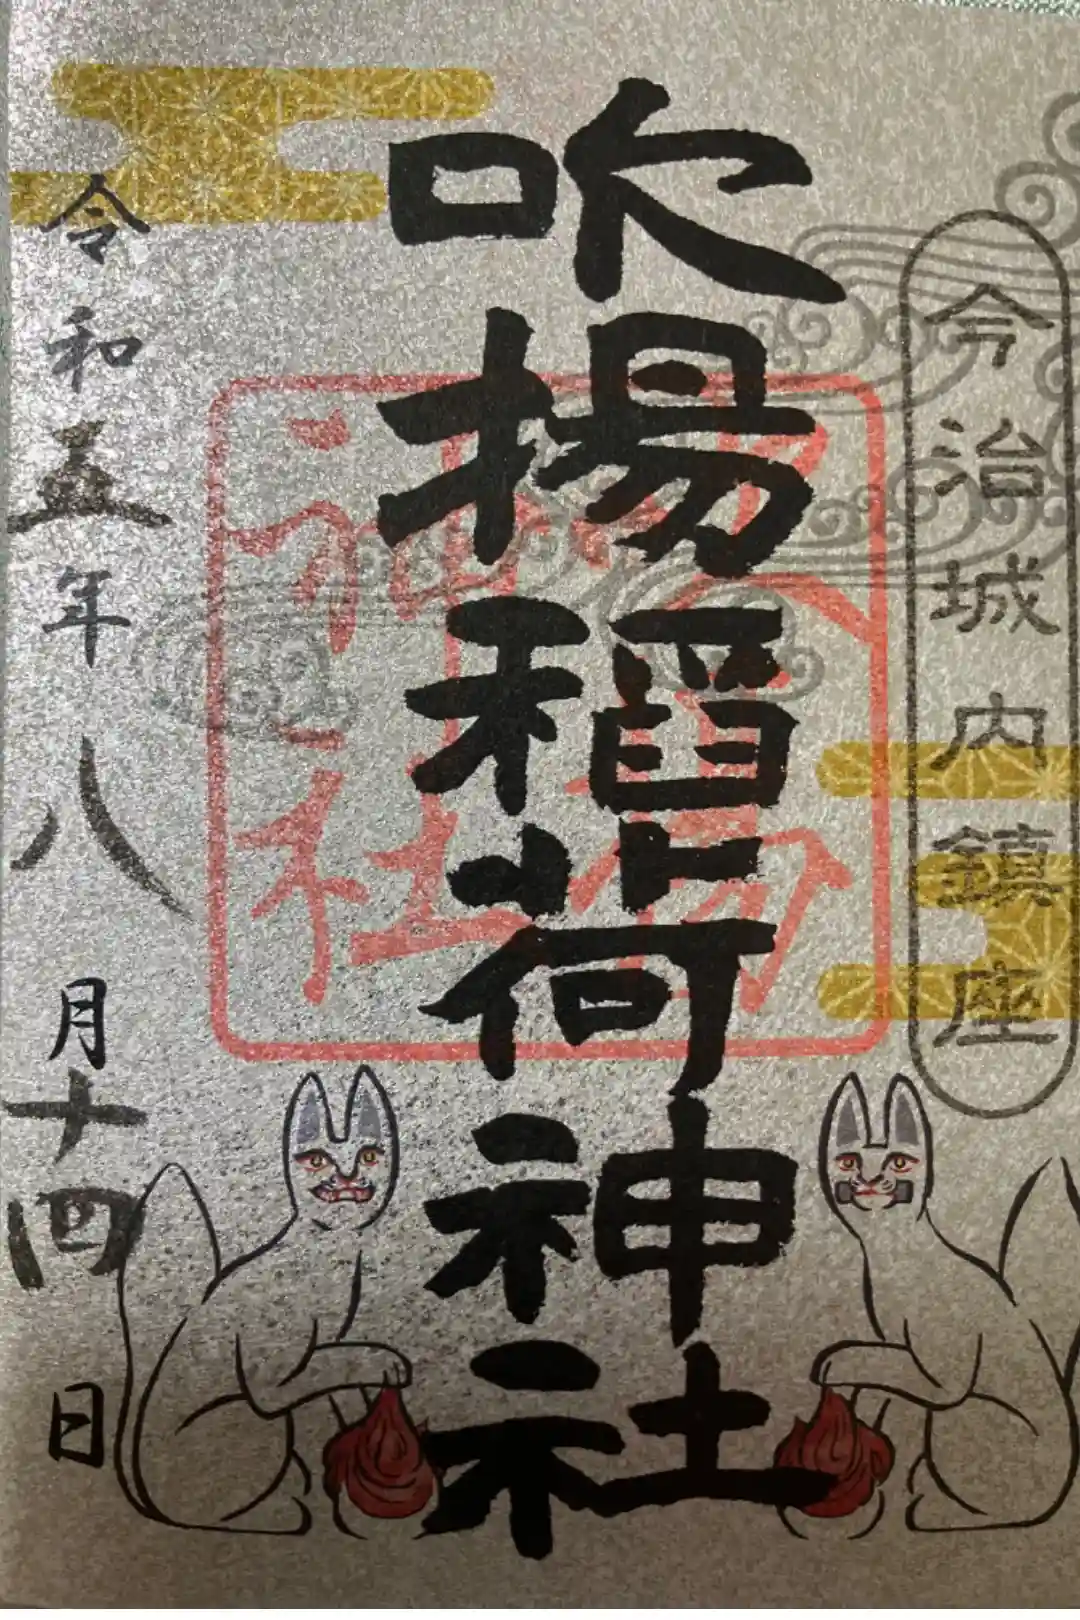 今治城内鎮座
吹揚稻荷神社
吹揚神社
令和五年八月十四日